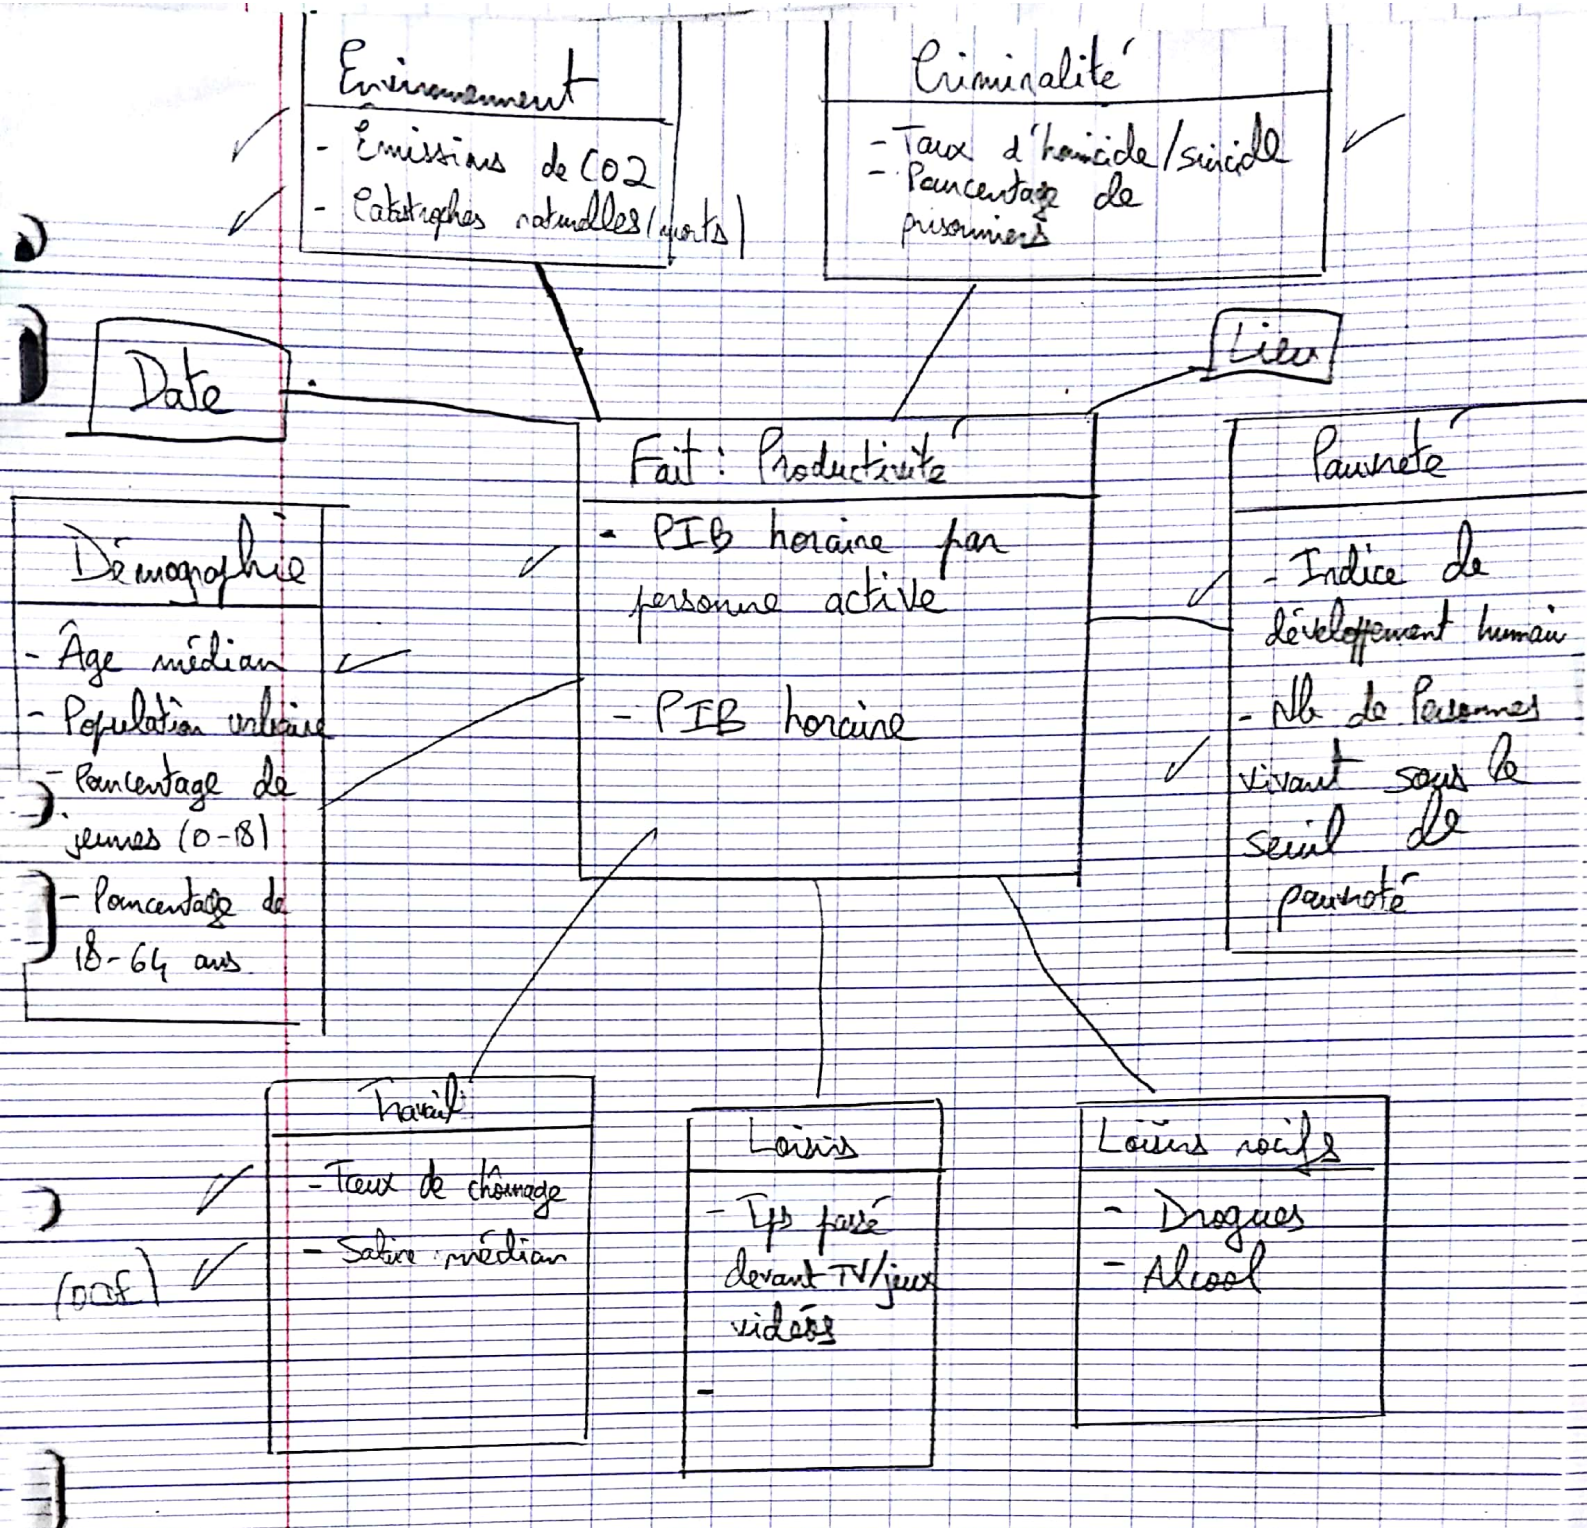 Environnement
- Émissions de CO2
- Catastrophes naturelles (morts)
Criminalité
- Taux d'homicide/suicide
- Pourcentage de
prisonniers
Date
Lieu
Fait : Productivité
- PIB horaire par
personne active
- PIB horaire
Pauvreté
- Indice de
développement humain
- Nb de Personnes
vivant sous le
seuil de
pauvreté
Démographie
- Âge médian
- Population urbaine
- Pourcentage de
jeunes (0-18)
- Pourcentage de
18-64 ans
Travail
- Taux de chômage
- Salaire médian
Loisirs
- Tps passé
devant TV/jeux
vidéos
-
Loisirs nocifs
- Drogues
- Alcool